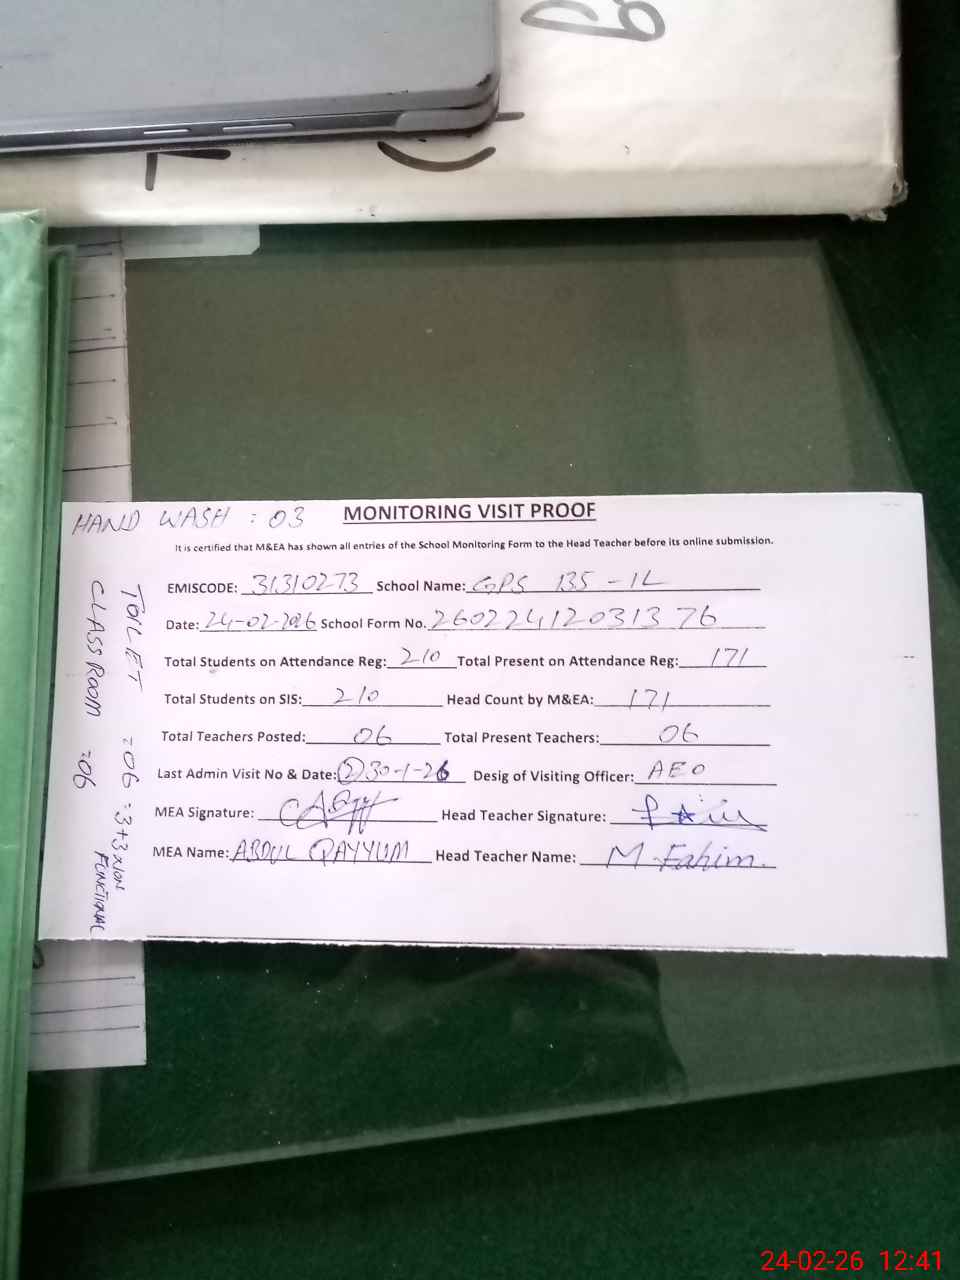 HAND WASH : 03
MONITORING VISIT PROOF
It is certified that M&EA has shown all entries of the School Monitoring Form to the Head Teacher before its online submission.
EMISCODE: 31310273 School Name: GPS 135-1L
Date: 24-02-2026 School Form No. 26022412031376
Total Students on Attendance Reg: 210 Total Present on Attendance Reg: 171
Total Students on SIS: 210 Head Count by M&EA: 171
Total Teachers Posted: 06 Total Present Teachers: 06
Last Admin Visit No & Date: (2) 30-1-26 Desig of Visiting Officer: AEO
MEA Signature: Head Teacher Signature:
MEA Name: ABDUL QAYYUM Head Teacher Name: M Fahim.
TOILET = 06 = 3+3 x NON
FUNCTIONAL
CLASS ROOM = 06
24-02-26 12:41